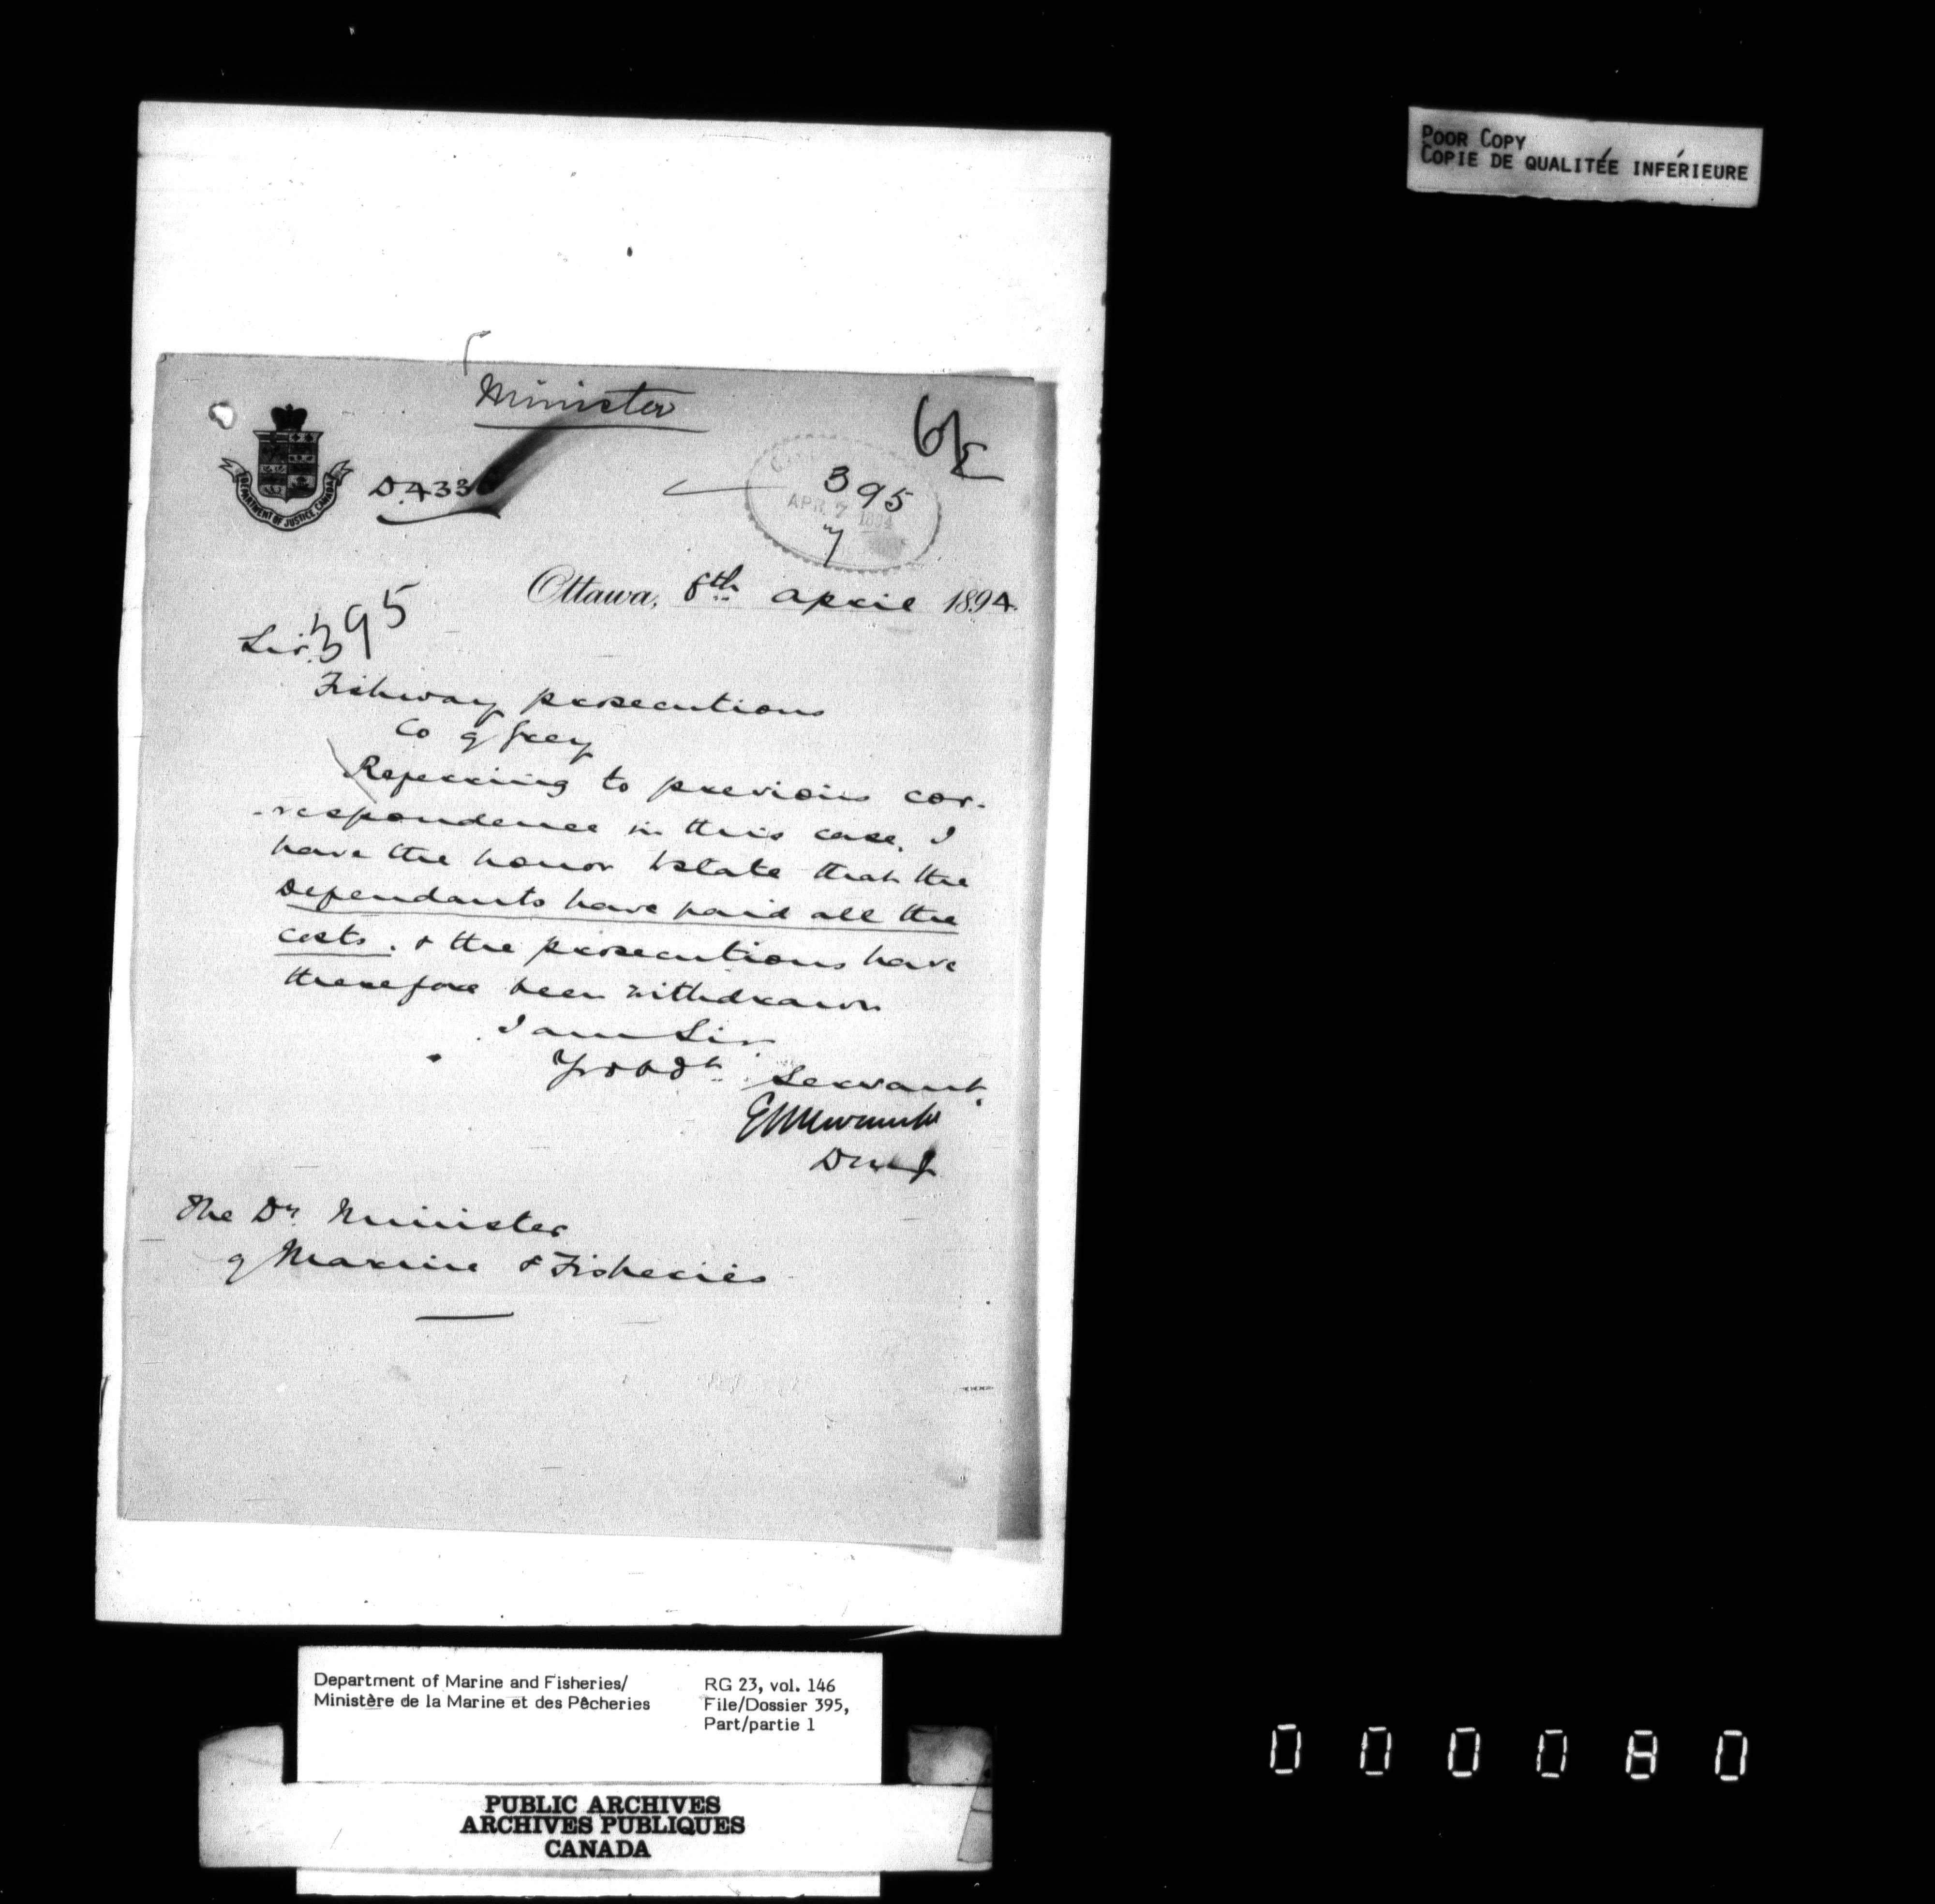 POOR COPY
COPIE DE QUALITÉE INFÉRIEURE
Minister
6/E
DEPARTMENT OF JUSTICE, CANADA
D.4336
395
APR 7 1894
7
Ottawa, 6th april 1894.
395
Sir.
Fishway prosecutions
Co of Grey
Referring to previous cor-
-respondence in this case, I
have the honor to state that the
Defendants have paid all the
costs. & the prosecutions have
therefore been withdrawn
I am Sir.
Yr obdt. Servant.
E L Newcombe
D M J
The Dy. Minister
of Marine & Fisheries
Department of Marine and Fisheries/
Ministère de la Marine et des Pêcheries
RG 23, vol. 146
File/Dossier 395,
Part/partie 1
PUBLIC ARCHIVES
ARCHIVES PUBLIQUES
CANADA
000080